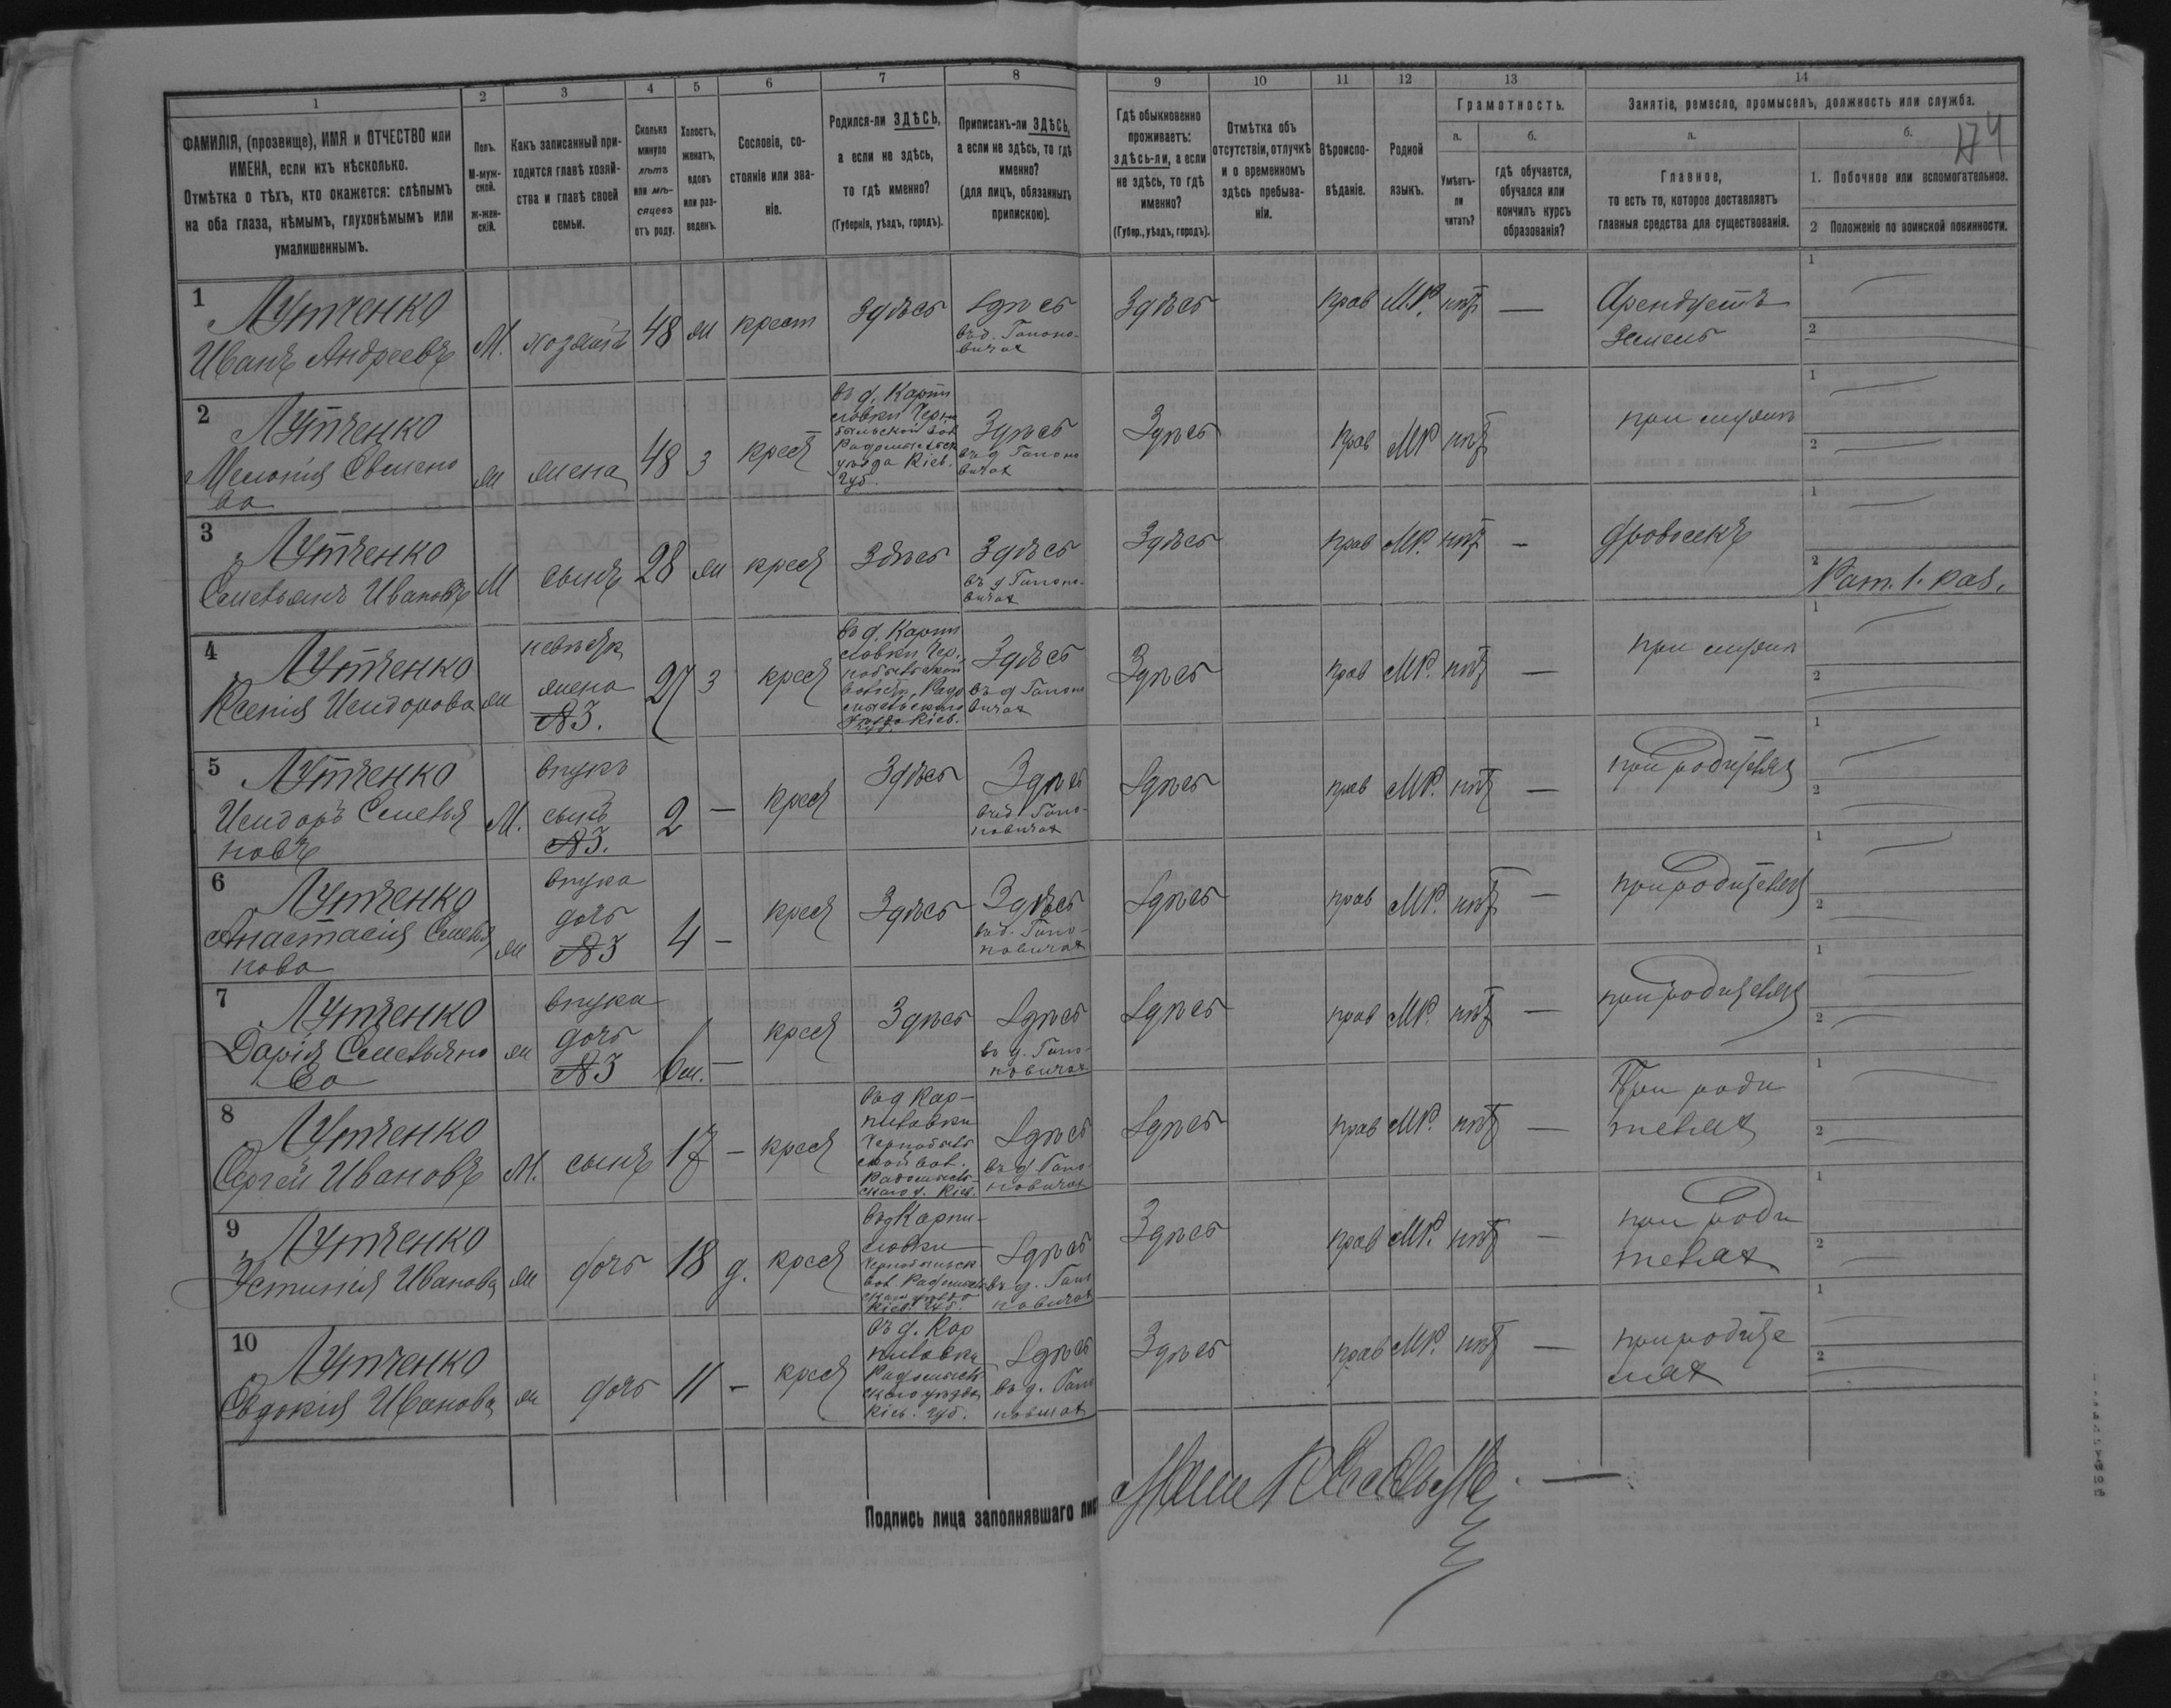 1 2 3 4 5 6 7 8 9 10 11 12 13 14
ФАМИЛІЯ, (прозвище), ИМЯ и ОТЧЕСТВО или
ИМЕНА, если ихъ нѣсколько.
Отмѣтка о тѣхъ, кто окажется: слѣпымъ
на оба глаза, нѣмымъ, глухонѣмымъ или
умалишеннымъ.
Полъ.
М-муж-
ской.
Ж-жен-
скій.
Какъ записанный при-
ходится главѣ хозяй-
ства и главѣ своей
семьи.
Сколько
минуло
лѣтъ
или мѣ-
сяцевъ
отъ роду.
Холостъ,
женатъ,
вдовъ
или раз-
веденъ.
Сословіе, со-
стояніе или зва-
ніе.
Родился-ли ЗДѢСЬ,
а если не здѣсь,
то гдѣ именно?
(Губернія, уѣздъ, городъ).
Приписанъ-ли ЗДѢСЬ,
а если не здѣсь, то гдѣ
именно?
(для лицъ, обязанныхъ
припискою).
Гдѣ обыкновенно
проживаетъ:
здѣсь-ли, а если
не здѣсь, то гдѣ
именно?
(Губер., уѣздъ, городъ).
Отмѣтка объ
отсутствіи, отлучкѣ
и о временномъ
здѣсь пребыва-
ніи.
Вѣроиспо-
вѣданіе.
Родной
языкъ.
Грамотность.
а.
Умѣетъ-
ли
читать?
б.
гдѣ обучается,
обучался или
кончилъ курсъ
образованія?
Занятіе, ремесло, промыселъ, должность или служба.
а.
Главное,
то есть то, которое доставляетъ
главныя средства для существованія.
б.
174
1. Побочное или вспомогательное.
2 Положеніе по воинской повинности.
1
Лутченко
Иванъ Андреевъ
М. хозяинъ 48 ж крест Здѣсь
Здѣсь
въ д. Гапоно-
вичах
Здѣсь прав М.Р. нѣт —
Арендуетъ
землю
1 —
2 —
2
Лутченко
Семено
ва
ж жена 48 з крест
въ д. Карпи
ловки Черно
быльской вол
Радомысльск
уѣзда Кіев.
Губ.
Здѣсь
въ д Гапоно
вичах
Здѣсь прав МР. нѣт
при мужѣ
1 —
2 —
3
Лутченко
Севельянъ Ивановъ
М сынъ 28 ж крест Здѣсь
Здѣсь
въ д Гапоно-
вичах
Здѣсь прав МР. нѣт —
дровосекъ
1 —
2 Рат. 1. раз.
4
Лутченко
Ксенія Исидорова
ж
невѣстка
жена
№3.
27 з крест
въ д. Карпи
ловки Чер-
нобыльской
волости, Радо
мысльскаго
уѣзда Кіев.
Губ.
Здѣсь
въ д Гапоно
вичах
Здѣсь прав МР. нѣт —
при мужѣ
1 —
2 —
5
Лутченко
Исидоръ Севелья
новъ
М.
внукъ
сынъ
№3.
2 — крест Здѣсь
Здѣсь
въ д. Гапо-
новичах
Здѣсь прав МР. нѣт —
при родителях
1 —
2 —
6
Лутченко
Анастасія Севелья
нова
ж
внука
дочь
№3
4 — крест Здѣсь
Здѣсь
въ д. Гапо-
новичах
Здѣсь прав МР. нѣт —
при родителях
1 —
2 —
7
Лутченко
Дарія Севельяно
ва
ж
внука
дочь
№3
6 м. — крест Здѣсь
Здѣсь
въ д. Гапо-
новичах
Здѣсь прав МР. нѣт —
при родителях
1 —
2 —
8
Лутченко
Сергѣй Ивановъ
М. сынъ 17 — крест
въ д Кар-
пиловки
Чернобыль
ской вол.
Радомысль-
скаго у. Кіев.
Здѣсь
въ д Гапо-
новичах
Здѣсь прав МР. нѣт —
При роди
телях
1 —
2 —
9
Лутченко
Устинія Иванова
ж дочь 18 д. крест
въ д Карпи-
ловки
Чернобыльск
вол. Радомысль
скаго уѣзда
Кіев. Губ.
Здѣсь
въ д. Гапо
новичах
Здѣсь прав МР. нѣт —
при роди
телях
1 —
2 —
10
Лутченко
Евдокія Иванова
ж дочь 11 — крест
въ д. Кар
пиловки
Радомысль
скаго уѣзда
Кіев. Губ.
Здѣсь
въ д. Гапо
новичах
Здѣсь прав МР. нѣт —
при родите
лях
1 —
2 —
Подпись лица заполнявшаго лис